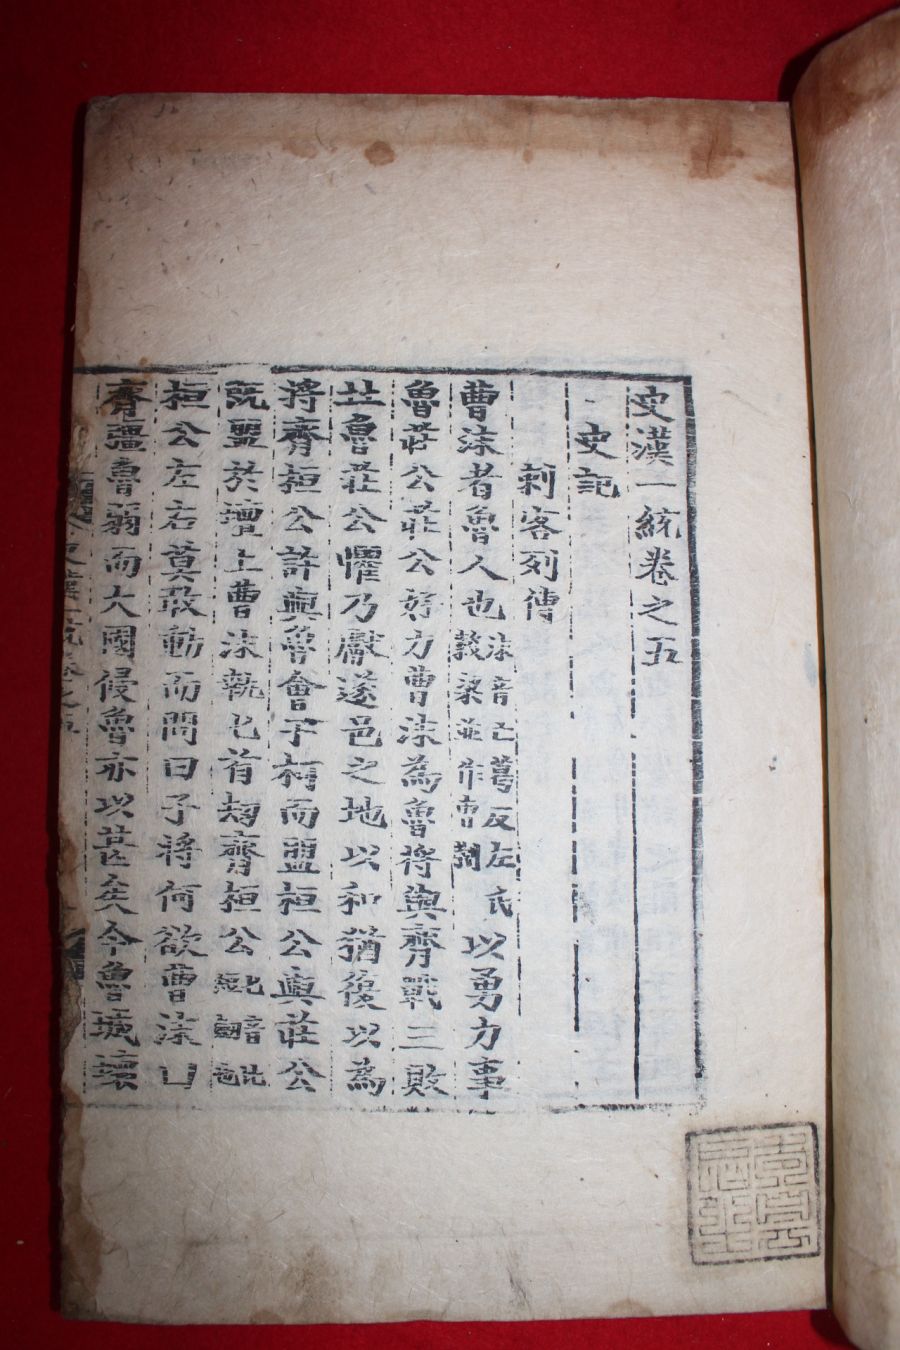 史漢一統卷之五
史記
刺客列傳
曹沫者魯人也沫音亡葛反左氏穀梁並作曹劌以勇力事
魯莊公莊公好力曹沫為魯將與齊戰三敗
北魯莊公懼乃獻遂邑之地以和猶復以為
將齊桓公許與魯會于柯而盟桓公與莊公
既盟於壇上曹沫執匕首刼齊桓公
桓公左右莫敢動而問曰子將何欲曹沫曰
齊强魯弱而大國侵魯亦以甚矣今魯城壞
史漢一統卷之五